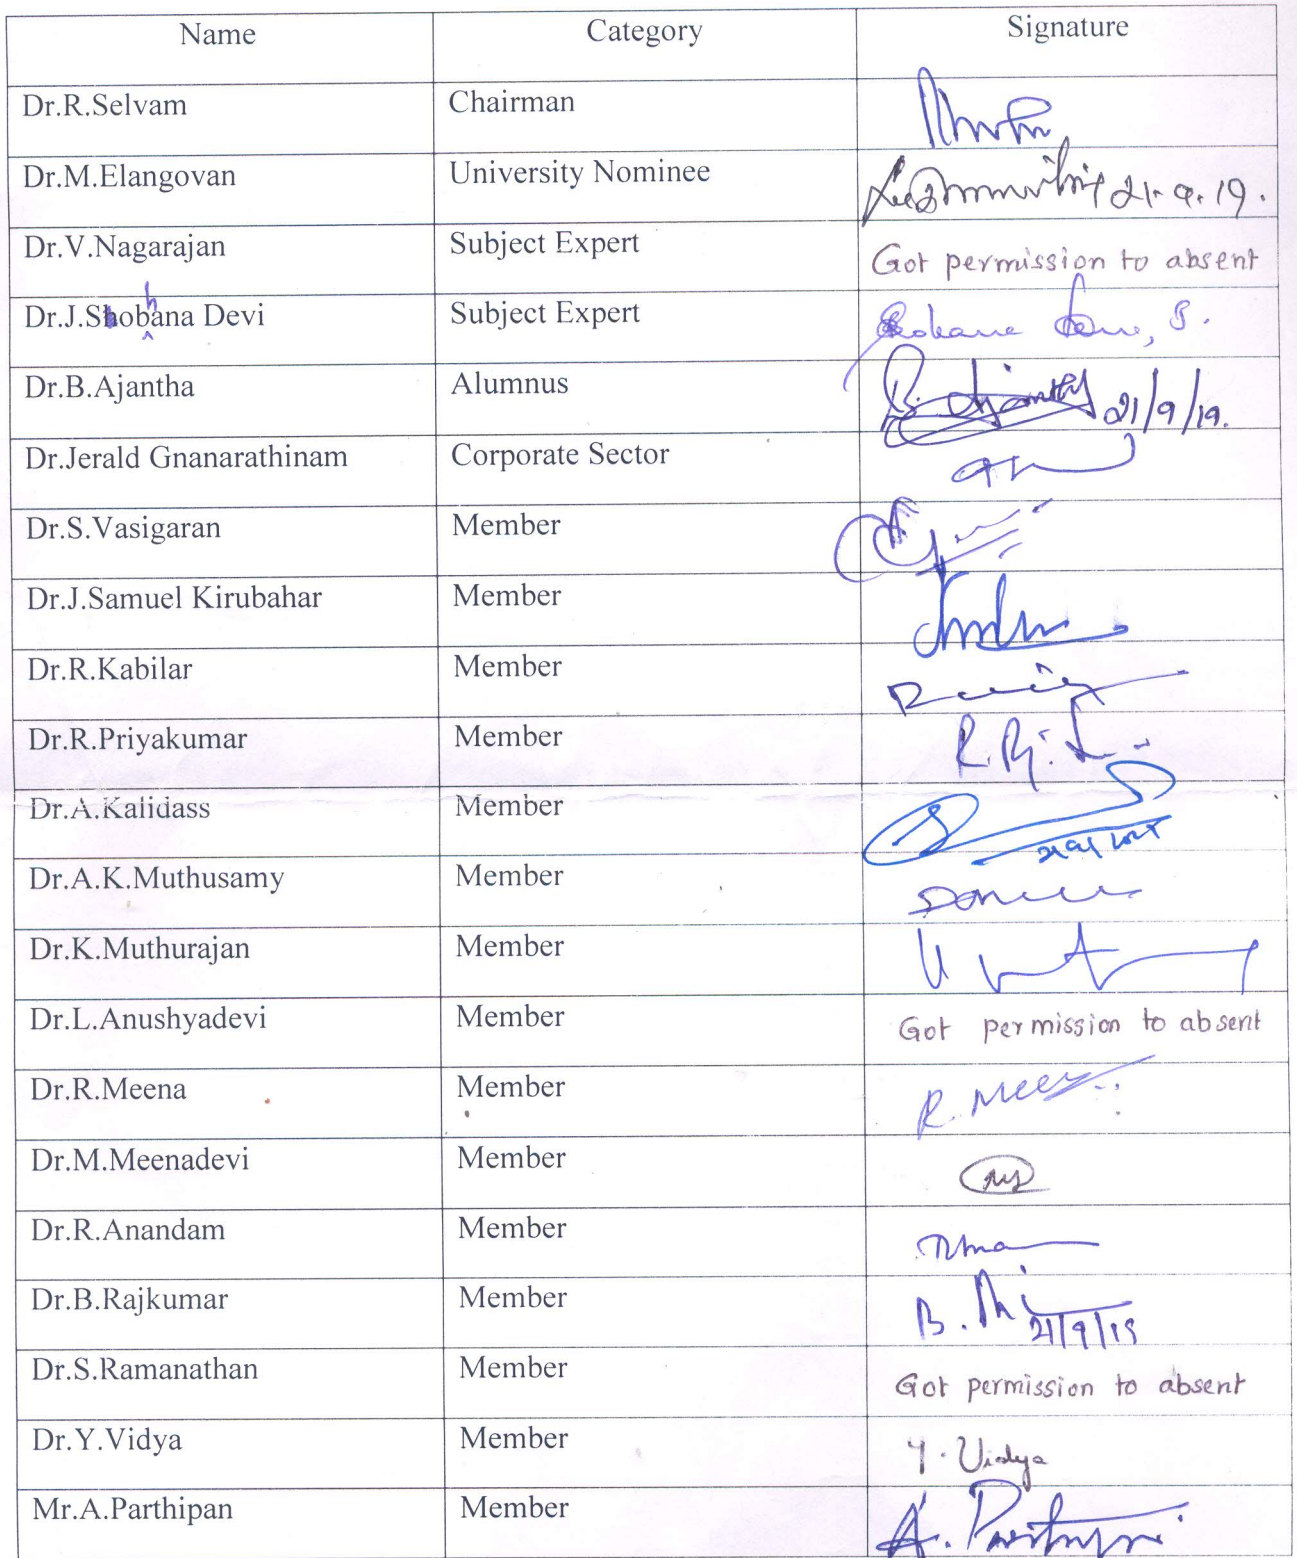 Name Category Signature
Dr.R.Selvam Chairman
Dr.M.Elangovan University Nominee 21.9.19.
Dr.V.Nagarajan Subject Expert Got permission to absent
Dr.J.Shobhana Devi Subject Expert
Dr.B.Ajantha Alumnus B. Ajantha 21/9/19.
Dr.Jerald Gnanarathinam Corporate Sector
Dr.S.Vasigaran Member
Dr.J.Samuel Kirubahar Member
Dr.R.Kabilar Member
Dr.R.Priyakumar Member
Dr.A.Kalidass Member
Dr.A.K.Muthusamy Member
Dr.K.Muthurajan Member
Dr.L.Anushyadevi Member Got permission to absent
Dr.R.Meena Member R. Meena
Dr.M.Meenadevi Member
Dr.R.Anandam Member
Dr.B.Rajkumar Member 21/9/19
Dr.S.Ramanathan Member Got permission to absent
Dr.Y.Vidya Member Y. Vidya
Mr.A.Parthipan Member